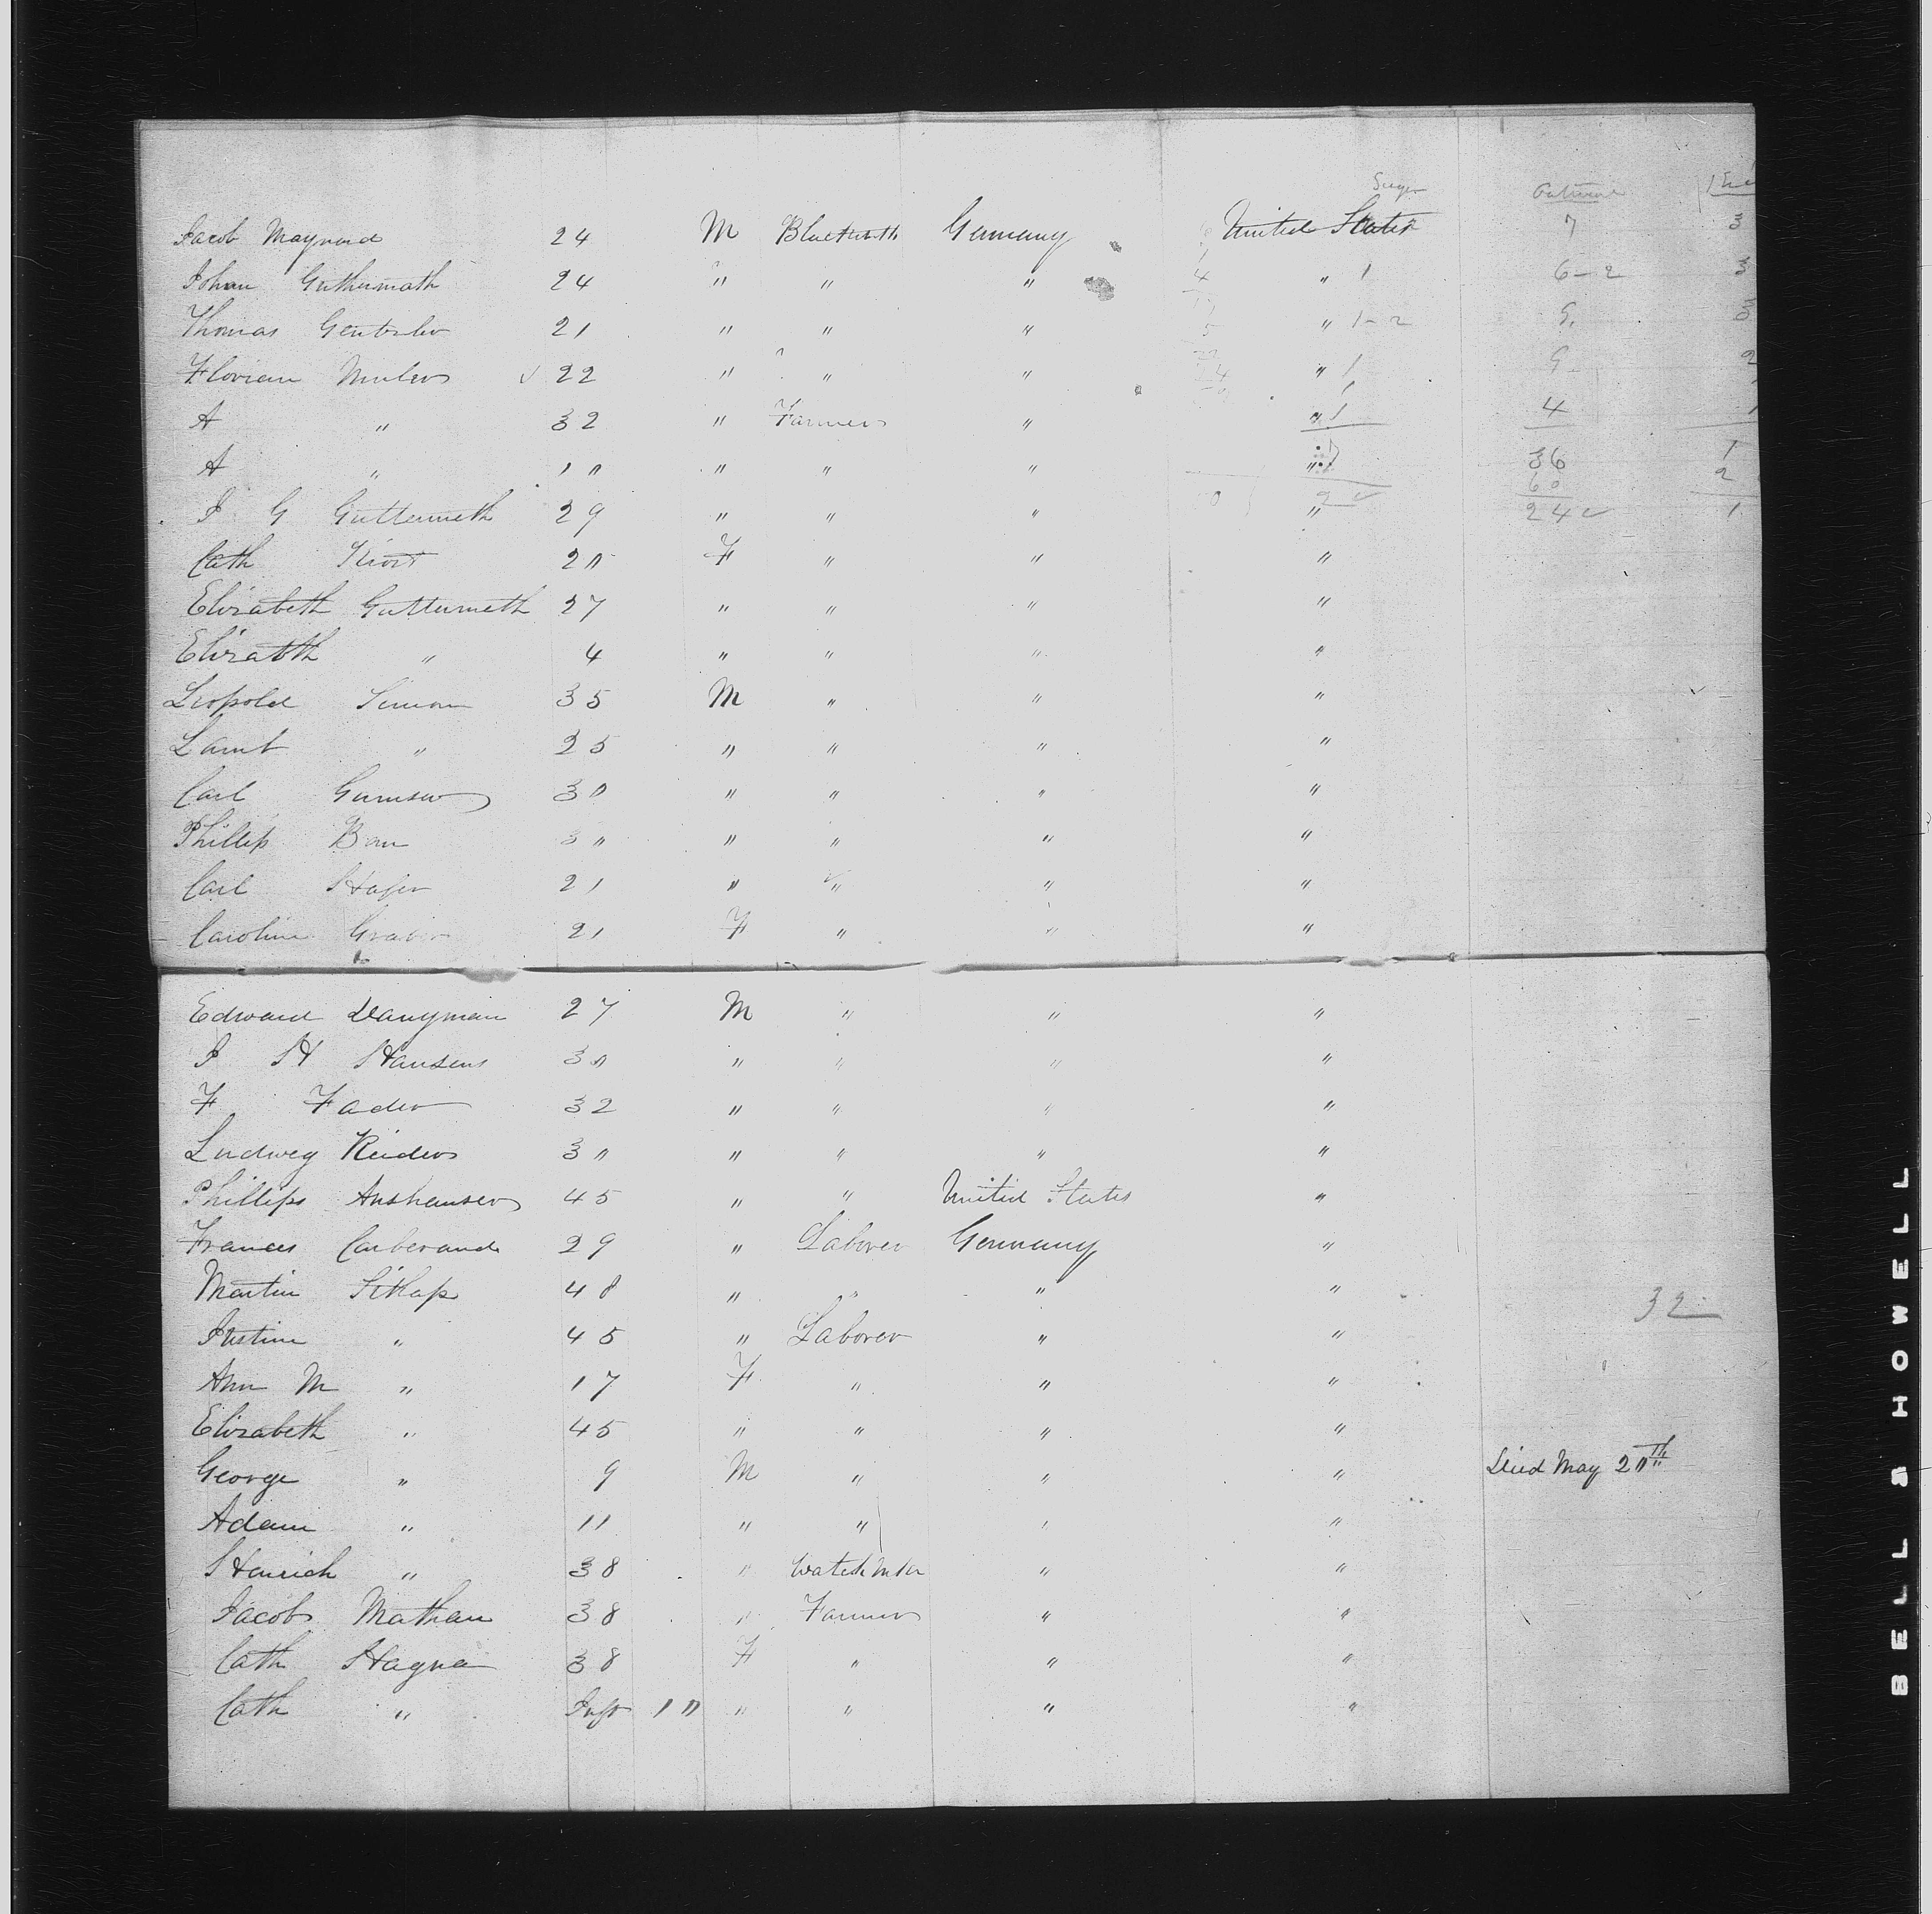 Sugar Oatmeal
Jacob Maynard 24 M Blacksmith Germany United States 7 3
Johan Guthermath 24 " " " 4 " 1 6-2 3
Thomas 21 " " " 5 " 1-2 3
Florian ✓ 22 " " " " 1 2
A " 32 " Farmer " " 1 4 1
A " 10 " " " " 36 1
60 2
J G Guttermeth 29 " " " 0 " 2 ✓ 24 ✓ 1
Cath 20 F " " "
Elizabeth Guttermeth 27 " " " "
Elizabth " 4 " " " "
Leopold Simon 35 M " " "
Lamb " 25 " " " "
Carl 30 " " " "
Phillip Bau 30 " " " "
Carl Hafer 21 " " " "
Caroline Graber 21 F " " "
Edward Dangman 27 M " " "
J H Hansens 30 " " " "
F Fader 32 " " " "
Ludweg Reiders 30 " " " "
Phillips Anshauser 45 " " United States "
Frances Carberand 29 " Laborer Germany "
Martin Sithap 48 " " " "
32
Justine " 45 " Laborer " "
Ann M " 17 F " " "
Elizabeth " 45 " " " "
George " 9 M " " " Died May 20th
Adam " 11 " " " "
Henrich " 38 " Watch Mkr " "
Jacob Mathan 38 " Farmer " "
Cath Hagna 38 F " " "
Cath " Inft 10 " " " "
BELL & HOWELL